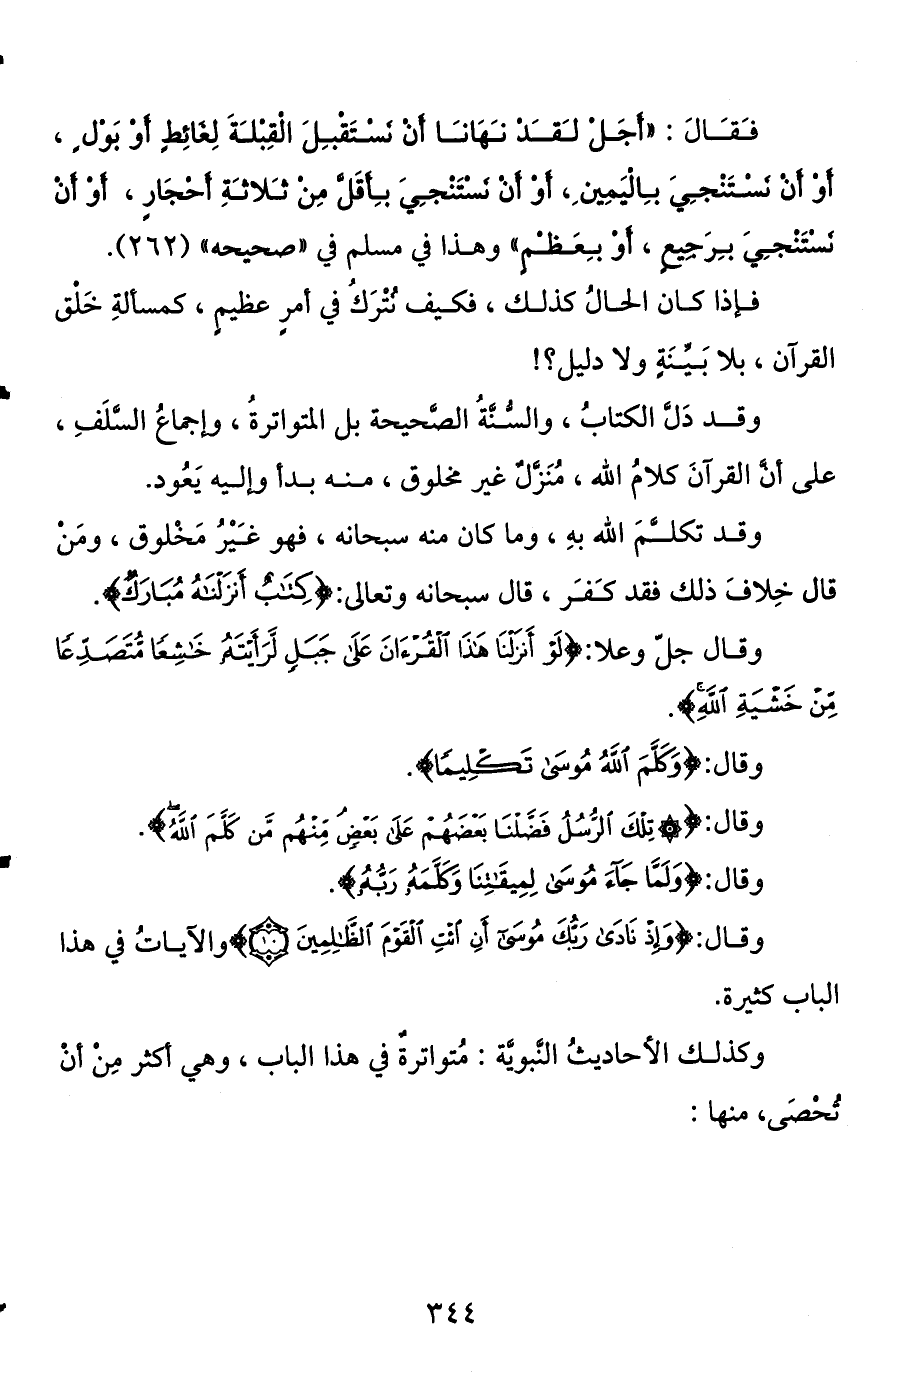 فَقَالَ : «أَجَلْ لَقَدْ نَهَانَا أَنْ نَسْتَقْبِلَ الْقِبْلَةَ لِغَائِطٍ أَوْ بَوْلٍ ،
أَوْ أَنْ نَسْتَنْجِيَ بِالْيَمِينِ ، أَوْ أَنْ نَسْتَنْجِيَ بِأَقَلَّ مِنْ ثَلَاثَةِ أَحْجَارٍ ، أَوْ أَنْ
نَسْتَنْجِيَ بِرَجِيعٍ ، أَوْ بِعَظْمٍ» وهذا في مسلم في «صحيحه» (٢٦٢).
فإذا كان الحالُ كذلك ، فكيف نُتْرَكُ في أمرٍ عظيمٍ ، كمسألةِ خَلْق
القرآن ، بلا بَيِّنَةٍ ولا دليل؟!
وقد دَلَّ الكتابُ ، والسُّنَّةُ الصَّحيحة بل المتواترةُ ، وإجماعُ السَّلَفِ ،
على أنَّ القرآنَ كلامُ الله ، مُنَزَّلٌ غير مخلوق ، منه بدأ وإليه يَعُود.
وقد تكلَّمَ الله بِهِ ، وما كان منه سبحانه ، فهو غَيْرُ مَخْلوق ، ومَنْ
قال خِلافَ ذلك فقد كَفَرَ ، قال سبحانه وتعالى:﴿كِتَٰبٌ أَنزَلْنَٰهُ مُبَارَكٌ﴾.
وقال جلّ وعلا:﴿لَوْ أَنزَلْنَا هَٰذَا ٱلْقُرْءَانَ عَلَىٰ جَبَلٍ لَّرَأَيْتَهُۥ خَٰشِعًا مُّتَصَدِّعًا
مِّنْ خَشْيَةِ ٱللَّهِۚ﴾.
وقال:﴿وَكَلَّمَ ٱللَّهُ مُوسَىٰ تَكْلِيمًا﴾.
وقال:﴿۞ تِلْكَ ٱلرُّسُلُ فَضَّلْنَا بَعْضَهُمْ عَلَىٰ بَعْضٍۘ مِّنْهُم مَّن كَلَّمَ ٱللَّهُۖ﴾.
وقال:﴿وَلَمَّا جَآءَ مُوسَىٰ لِمِيقَٰتِنَا وَكَلَّمَهُۥ رَبُّهُۥ﴾.
وقال:﴿وَإِذْ نَادَىٰ رَبُّكَ مُوسَىٰٓ أَنِ ٱئْتِ ٱلْقَوْمَ ٱلظَّٰلِمِينَ ١٠﴾والآياتُ في هذا
الباب كثيرة.
وكذلك الأحاديثُ النَّبويَّة : مُتواترةٌ في هذا الباب ، وهي أكثر مِنْ أنْ
تُحْصَى، منها :
٣٤٤